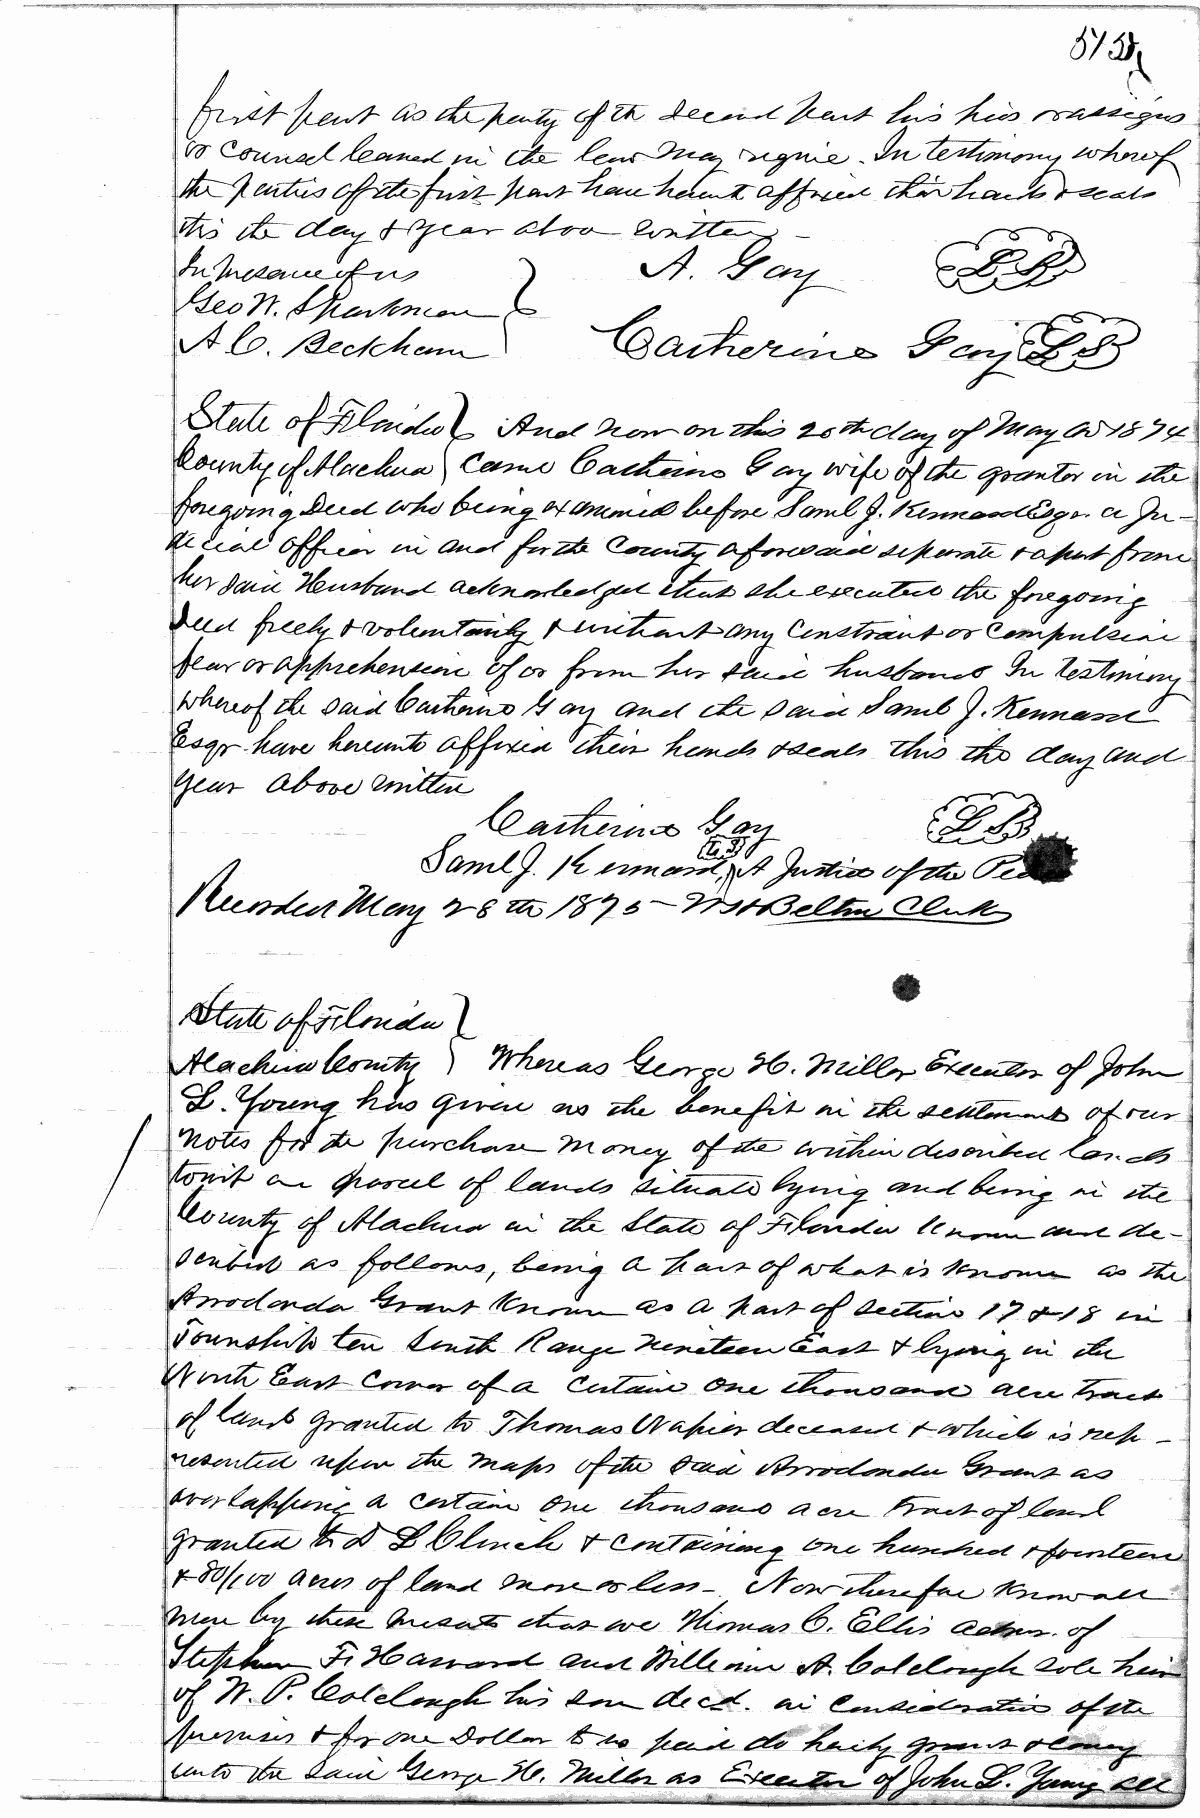 575
first part as the party of the second part his heirs or assigns
or counsel learned in the law may require. In testimony whereof
the parties of the first part have hereunto affixed their hands & seals
this the day & year above written -
In presence of us A. Gay L S
Geo W. Sparkman
A C. Beckham Catherine Gay L S
State of Florida And now on this 20th day of May AD 1874
County of Alachua came Catherine Gay wife of the grantor in the
foregoing Deed who being examined before Saml J. Kennard Esqr. a Ju-
dicial officer in and for the County aforesaid separate & apart from
her said Husband acknowledged that she executed the foregoing
Deed freely & voluntarily & without any constraint or compulsion
fear or apprehension of or from her said husband In testimony
whereof the said Catherine Gay and the said Saml J. Kennard
Esqr have hereunto affixed their hands & seals this the day and
year above written
Catherine Gay L S
Saml J. Kennard, L S A Justice of the
Recorded May 28th 1875 - Belton Clerk
State of Florida
Alachua County Whereas George H. Miller Executor of John
L. Young has given us the benefit in the settlement of our
notes for the purchase money of the within described lands
towit a parcel of lands situate lying and being in the
County of Alachua in the State of Florida known and de-
scribed as follows, being a part of what is known as the
Arrodonda Grant known as a part of section 17 & 18 in
Township ten South Range nineteen East & lying in the
North East corner of a certain one thousand acre tract
of land granted to Thomas Napier deceased & which is rep-
resented upon the maps of the said Arrodonda Grant as
overlapping a certain one thousand acre tract of land
granted to D L Clinch & containing one hundred & fourteen
& 80/100 acres of land more or less - Now therefore know all
men by these presents that we Thomas C. Ellis admr. of
Stephen F. Harvard and William A. Colclough sole heir
of W. P. Colclough his son decd. in consideration of the
premises & for one Dollar to us paid do hereby grant & convey
unto the said George H. Miller as Executor of John L. Young all